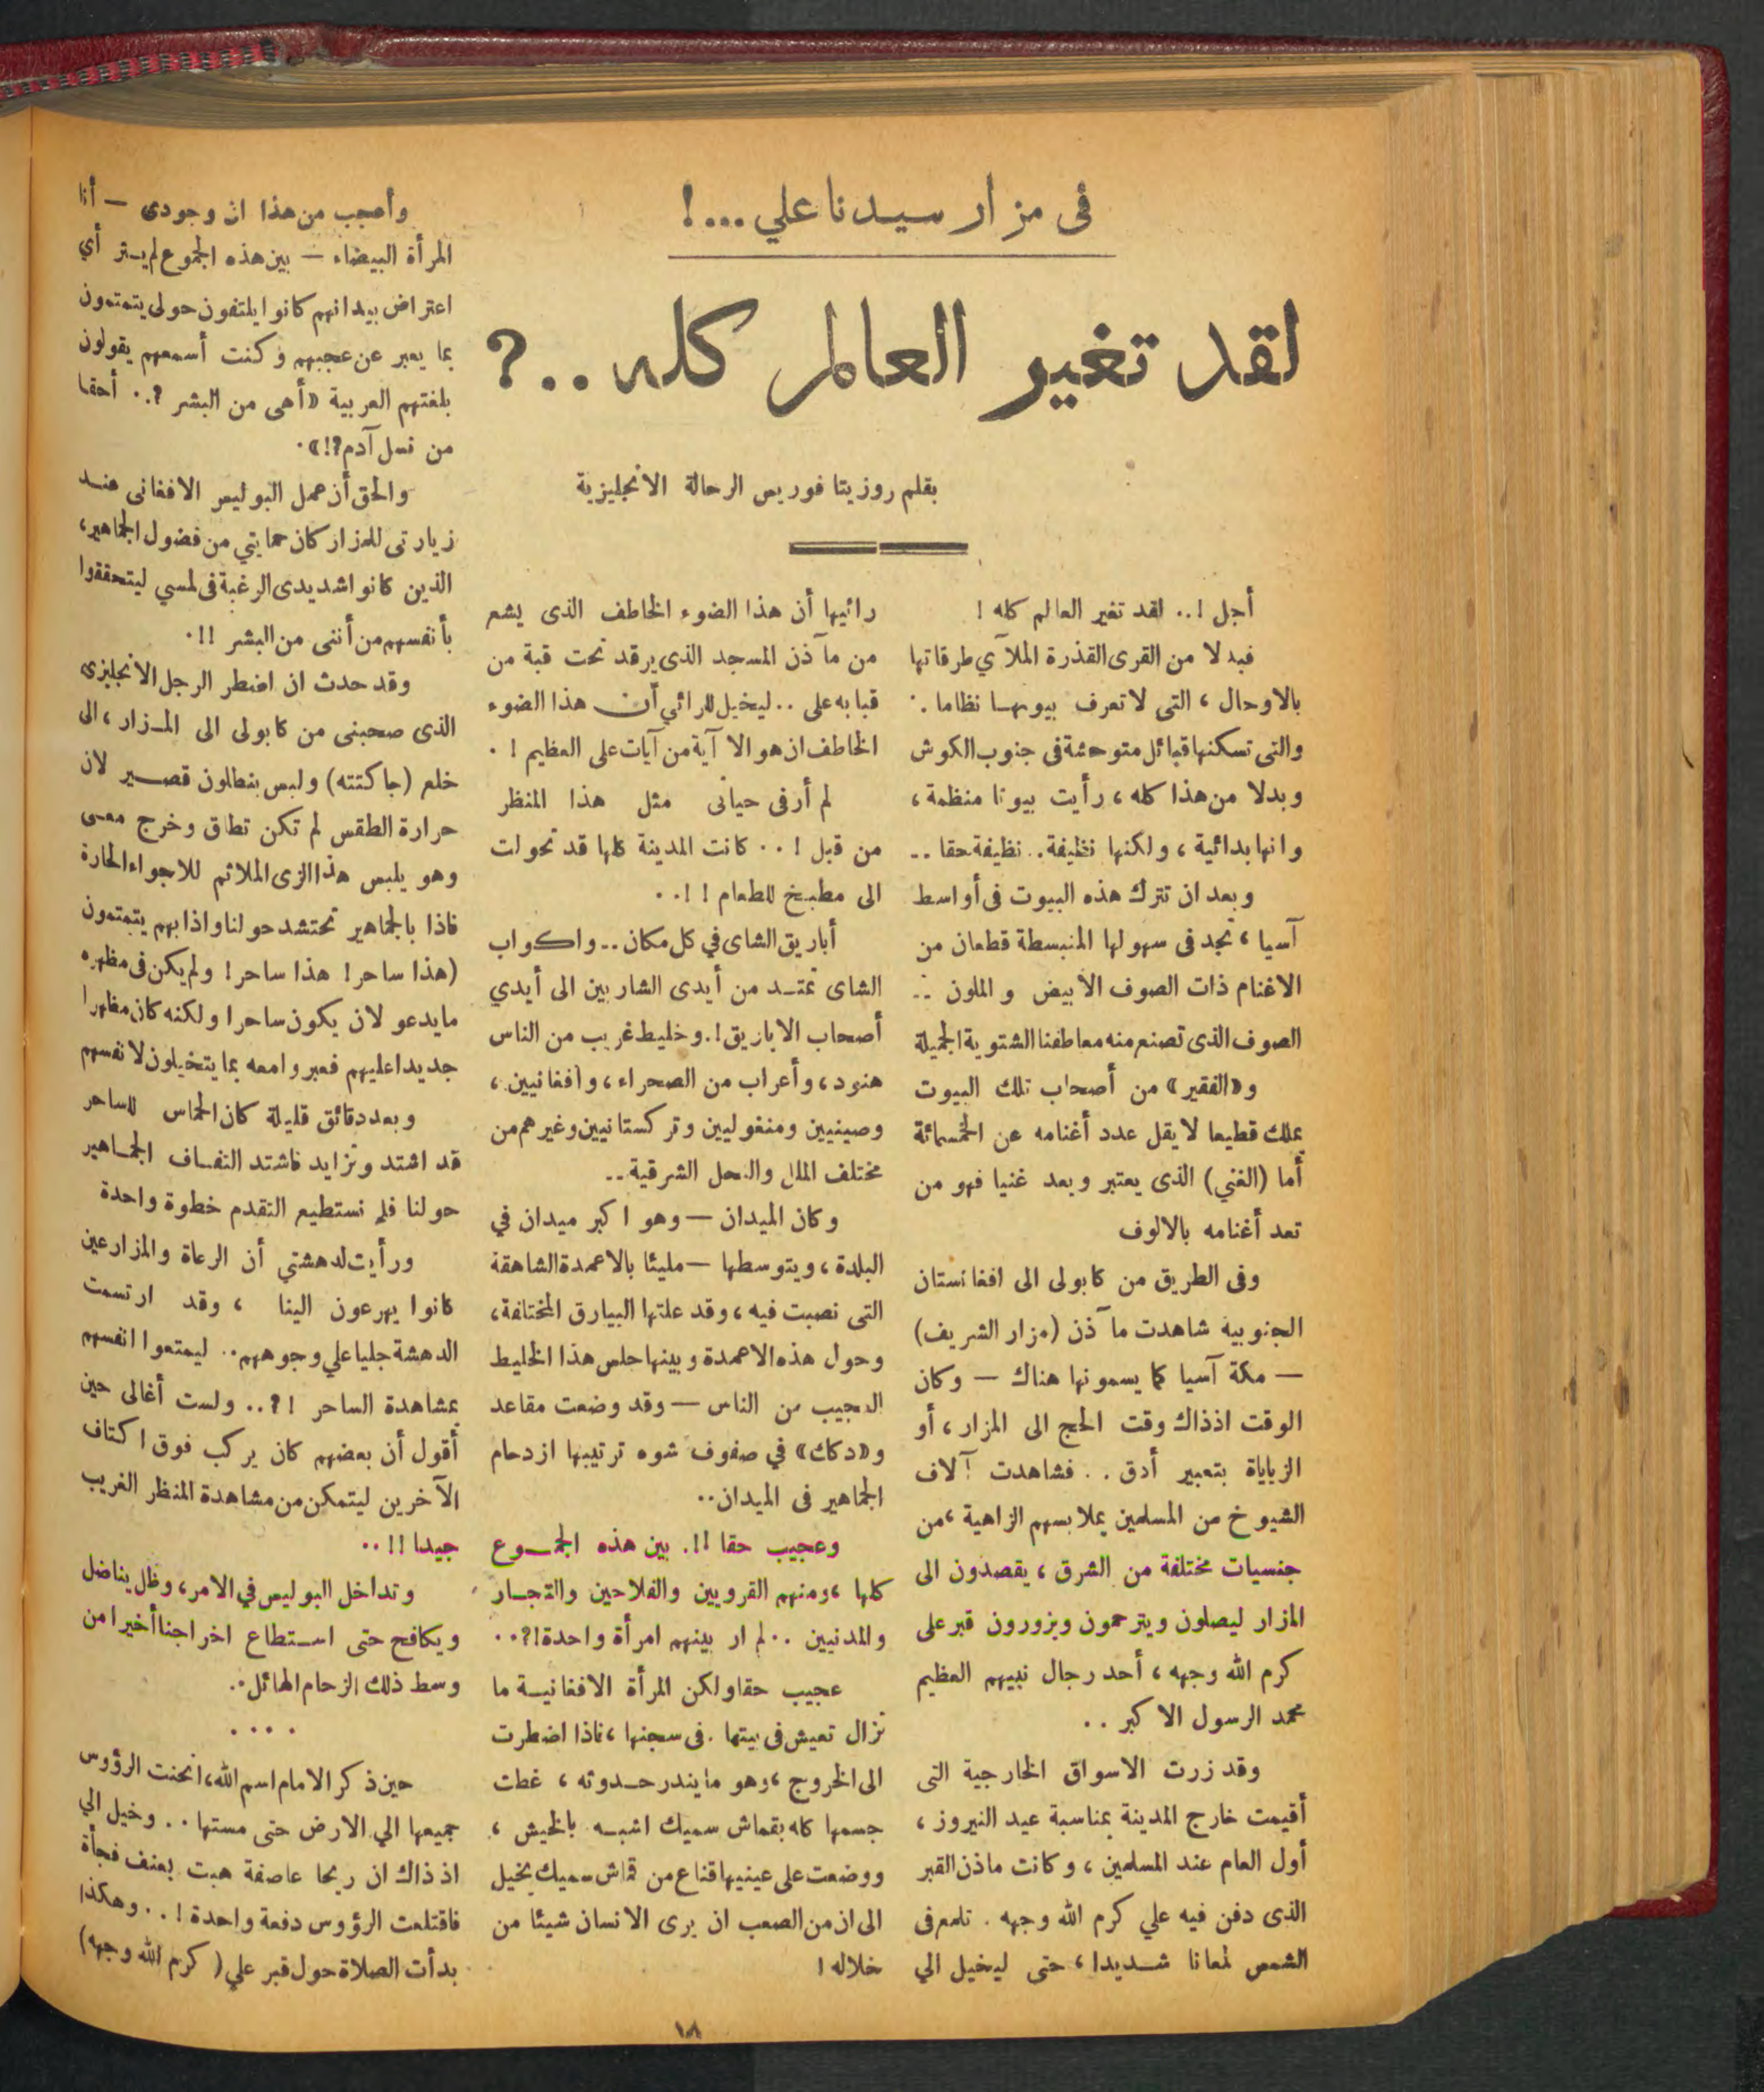 فى مزار سيدنا علي ...!
لقد تغير العالم كله ..؟
بقلم روزيتا فوربس الرحالة الانجليزية
أجل !.. لقد تغير العالم كله !
فبدلا من القرى القذرة الملآي طرقاتها
بالاوحال ، التى لا تعرف بيوتها نظاما .
والتى تسكنها قبائل متوحشة فى جنوب الكوش
وبدلا من هذا كله ، رأيت بيوتا منظمة ،
وانها بدائية ، ولكنها نظيفة .. نظيفة حقا ..
وبعد ان تترك هذه البيوت فى أواسط
آسيا ، تجد فى سهولها المنبسطة قطعان من
الاغنام ذات الصوف الأبيض و الملون ..
الصوف الذى تصنع منه معاطفنا الشتوية الجميلة
و«الفقير» من أصحاب تلك البيوت
يملك قطيعا لا يقل عدد أغنامه عن الخمسمائة
أما (الغني) الذى يعتبر وبعد غنيا فهو من
تعد أغنامه بالالوف
وفى الطريق من كابولى الى افغانستان
الجنوبية شاهدت مآذن (مزار الشريف)
— مكة آسيا كما يسمونها هناك — وكان
الوقت اذذاك وقت الحج الى المزار ، أو
الزياياة بتعبير أدق . . فشاهدت آلاف
الشيوخ من المسلمين بملابسهم الزاهية ، من
جنسيات مختلفة من الشرق ، يقصدون الى
المزار ليصلون ويترحمون ويزورون قبر على
كرم الله وجهه ، أحد رجال نبيهم العظيم
محمد الرسول الاكبر ..
وقد زرت الاسواق الخارجية التى
أقيمت خارج المدينة بمناسبة عيد النيروز ،
أول العام عند المسلمين ، وكانت ماذن القبر
الذى دفن فيه علي كرم الله وجهه . تلمع فى
الشمس لمعانا شديدا ، حتى ليخيل الي
رائيها أن هذا الضوء الخاطف الذى يشع
من مآذن المسجد الذى يرقد تحت قبة من
قبابه على .. ليخيل للرائي أن هذا الضوء
الخاطف ان هو الا آية من آيات على العظيم ! .
لم أر فى حياتى مثل هذا المنظر
من قبل ! .. كانت المدينة كلها قد تحولت
الى مطبخ للطعام ! ! ..
أباريق الشاى في كل مكان .. واكواب
الشاى تمتد من أيدى الشاربين الى أيدي
أصحاب الاباريق !. وخليط غريب من الناس
هنود ، وأعراب من الصحراء ، وأفغانيين ،
وصينيين ومنغوليين وتركستانيين وغيرهم من
مختلف الملل والنحل الشرقية ..
وكان الميدان — وهو اكبر ميدان في
البلدة ، ويتوسطها — مليئا بالاعمدة الشاهقة
التى نصبت فيه ، وقد علتها البيارق المختلفة ،
وحول هذه الاعمدة وبينها جلس هذا الخليط
العجيب من الناس — وقد وضعت مقاعد
و«دكك» في صفوف شوه ترتيبها ازدحام
الجماهير فى الميدان ..
وعجيب حقا !!. بين هذه الجموع
كلها ، ومنهم القرويين والفلاحين والتجار
والمدنيين .. لم ار بينهم امرأة واحدة !؟ ..
عجيب حقا ولكن المرأة الافغانية ما
تزال تعيش فى بيتها . فى سجنها ، فاذا اضطرت
الى الخروج ، وهو ما يندر حدوثه ، غطت
جسمها كله بقماش سميك اشبه بالخيش ،
ووضعت على عينيها قناع من قماش سميك يخيل
الى ان من الصعب ان يرى الانسان شيئا من
خلاله !
وأعجب من هذا ان وجودى — أنا
المرأة البيضاء — بين هذه الجموع لم يثر أي
اعتراض بيد انهم كانوا يلتفون حولى يتمتمون
بما يعبر عن عجبهم وكنت أسمعهم يقولون
بلغتهم العربية «أهى من البشر ؟.. أحقا
من نسل آدم ؟!» .
والحق أن عمل البوليس الافغانى عند
زيارتى للمزار كان حمايتي من فضول الجماهير ،
الذين كانوا شديدى الرغبة فى لمسي ليتحققوا
بأنفسهم من أننى من البشر !! .
وقد حدث ان اضطر الرجل الانجليزى
الذى صحبنى من كابولى الى المزار ، الى
خلع (جاكتته) ولبس بنطلون قصير لان
حرارة الطقس لم تكن تطاق وخرج معى
وهو يلبس هذا الزى الملائم للاجواء الحارة
فاذا بالجماهير تحتشد حولنا واذا بهم يتمتمون
(هذا ساحر ! هذا ساحر ! ولم يكن فى مظهره
ما يدعو لان يكون ساحرا ولكنه كان مظهرا
جديدا عليهم فعبروا معه بما يتخيلون لانفسهم
وبعد دقائق قليلة كان الحماس للساحر
قد اشتد وتزايد فاشتد التفاف الجماهير
حولنا فلم نستطيع التقدم خطوة واحدة
ورأيت لدهشتي أن الرعاة والمزارعين
كانوا يهرعون الينا ، وقد ارتسمت
الدهشة جليا علي وجوههم .. ليمتعوا انفسهم
بمشاهدة الساحر !؟.. ولست أغالى حين
أقول أن بعضهم كان يركب فوق اكتاف
الآخرين ليتمكن من مشاهدة المنظر الغريب
جيدا !! ..
وتداخل البوليس في الامر ، وظل يناضل
ويكافح حتى استطاع اخراجنا أخيرا من
وسط ذلك الزحام الهائل ..
. . . .
حين ذكر الامام اسم الله ، انحنت الرؤوس
جميعها الي الارض حتى مستها .. وخيل الي
اذ ذاك ان ريحا عاصفة هبت بعنف فجأة
فاقتلعت الرؤوس دفعة واحدة ! . . وهكذا
بدأت الصلاة حول قبر علي ( كرم الله وجهه )
١٨